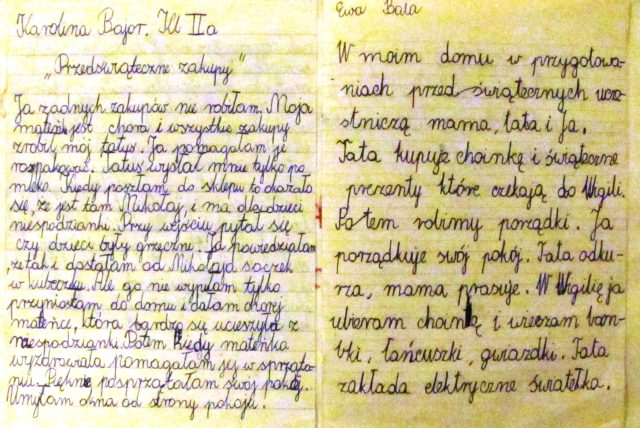 Karolina Bajor. Kl IIa
„Przedświąteczne zakupy"
Ja żadnych zakupów nie robiłam. Moja
mateńka jest chora i wszystkie zakupy
zrobił mój tatuś. Ja pomagałam je
rozpakować. Tatuś wysłał mnie tylko po
mleko. Kiedy poszłam do sklepu to okazało
się, że jest tam Mikołaj, i ma dla dzieci
niespodzianki. Przy wejściu pytał się
czy dzieci były grzeczne. Ja powiedziałam
że tak i dostałam od Mikołaja soczek
w kubeczku. Ale go nie wypiłam tylko
przyniosłam do domu i dałam chorej
mateńce, która bardzo się ucieszyła z
niespodzianki. Potem kiedy mateńka
wyzdrowiała pomagałam jej w sprząta-
niu. Pięknie posprzątałam swój pokój.
Umyłam okna od strony pokoju.
Ewa Bala
W moim domu w przygotowa-
niach przed świątecznych ucze-
stniczą mama, tata i ja.
Tata kupuje choinkę i świąteczne
prezenty które czekają do Wigili.
Potem robimy porządki. Ja
porządkuje swój pokój. Tata odku-
rza, mama prasuje. W Wigilię ja
ubieram choinkę i wieszam bom-
bki, łańcuszki, gwiazdki. Tata
zakłada elektryczne światełka.